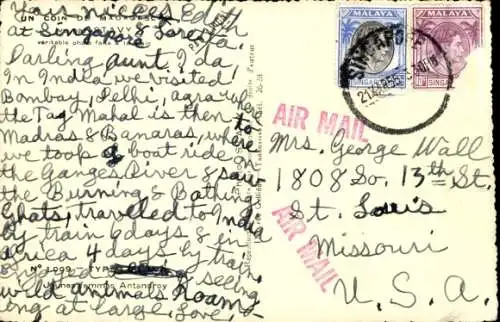 Your nieces Edith
at Singapore & Loretta
Darling aunt Ida
In India we visited
Bombay, Delhi, agra where
the Tag Mahal is then to
Madras & Banaras, where
we took a boat ride in
the Ganges River & saw
the Burning & Bathing
Ghats, traveled to India
by train 6 days & in
africa 4 days by train,
seeing
wild animals Roam-
ing at large. Love,
UN COIN DE
véritable photo
Nº 1009 TYPE
Jeunes femmes Antandroy
MALAYA
MALAYA
SINGAPORE
AIR MAIL
AIR MAIL
Mrs. George Wall
1808 So. 13th St.
St. Louis
Missouri
U. S. A.